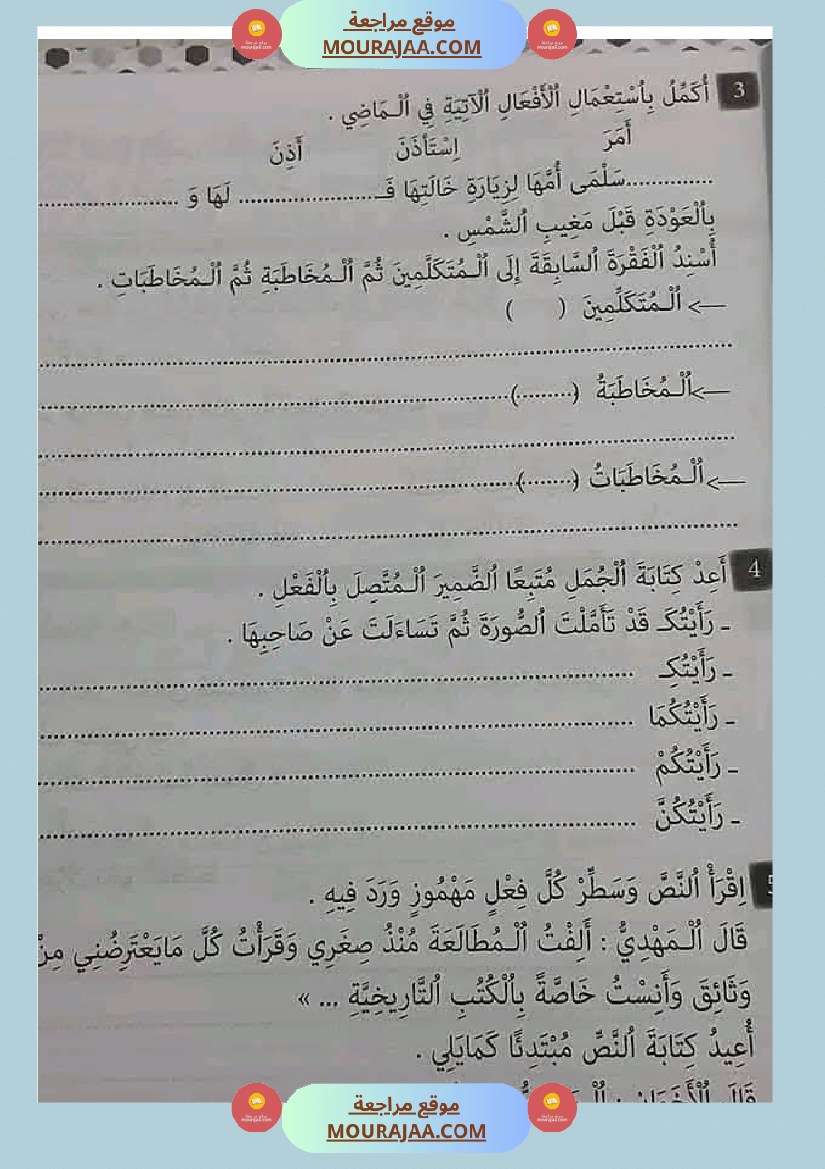 موقع مراجعة
MOURAJAA.COM
3 أُكَمِّلُ بِاُسْتِعْمَالِ اُلْأَفْعَالِ اُلْآتِيَةِ فِي اُلْـمَاضِي .
أَمَرَ اِسْتَأْذَنَ أَذِنَ
..............سَلْمَى أُمَّهَا لِزِيَارَةِ خَالَتِهَا فَـ.......................... لَهَا وَ ..........................
بِاُلْعَوْدَةِ قَبْلَ مَغِيبِ اُلشَّمْسِ .
أُسْنِدُ اُلْفَقْرَةَ اُلسَّابِقَةَ إِلَى اُلْـمُتَكَلَّمِينَ ثُمَّ اُلْـمُخَاطَبَةِ ثُمَّ اُلْـمُخَاطَبَاتِ .
اُلْـمُتَكَلِّمِينَ ( )
اُلْـمُخَاطَبَةُ (.........)
اُلْـمُخَاطَبَاتُ (.........)
4 أَعِدْ كِتَابَةَ اُلْجُمَلِ مُتَبِعًا اُلضَّمِيرَ اُلْـمُتَّصِلَ بِاُلْفَعْلِ .
ـ رَأَيْتُكَـ قَدْ تَأَمَّلْتَ اُلصُّورَةَ ثُمَّ تَسَاءَلَتَ عَنْ صَاحِبِهَا .
ـ رَأَيْتُكِـ ..........................
ـ رَأَيْتُكُمَا ..........................
ـ رَأَيْتُكُمْ ..........................
ـ رَأَيْتُكُنَّ ..........................
5 اِقْرَأْ اُلنَّصَّ وَسَطِّرْ كُلَّ فِعْلٍ مَهْمُوزٍ وَرَدَ فِيهِ .
قَالَ اُلْـمَهْدِيُّ : أَلِفْتُ اُلْـمُطَالَعَةَ مُنْذُ صِغَرِي وَقَرَأْتُ كُلَّ مَايَعْتَرِضُنِي مِنْ
وَثَائِقَ وَأَنِسْتُ خَاصَّةً بِاُلْكُتُبِ اُلتَّارِيخِيَّةِ ... »
أُعِيدُ كِتَابَةَ اُلنَّصِّ مُبْتَدِئًا كَمَايَلِي .
موقع مراجعة
MOURAJAA.COM